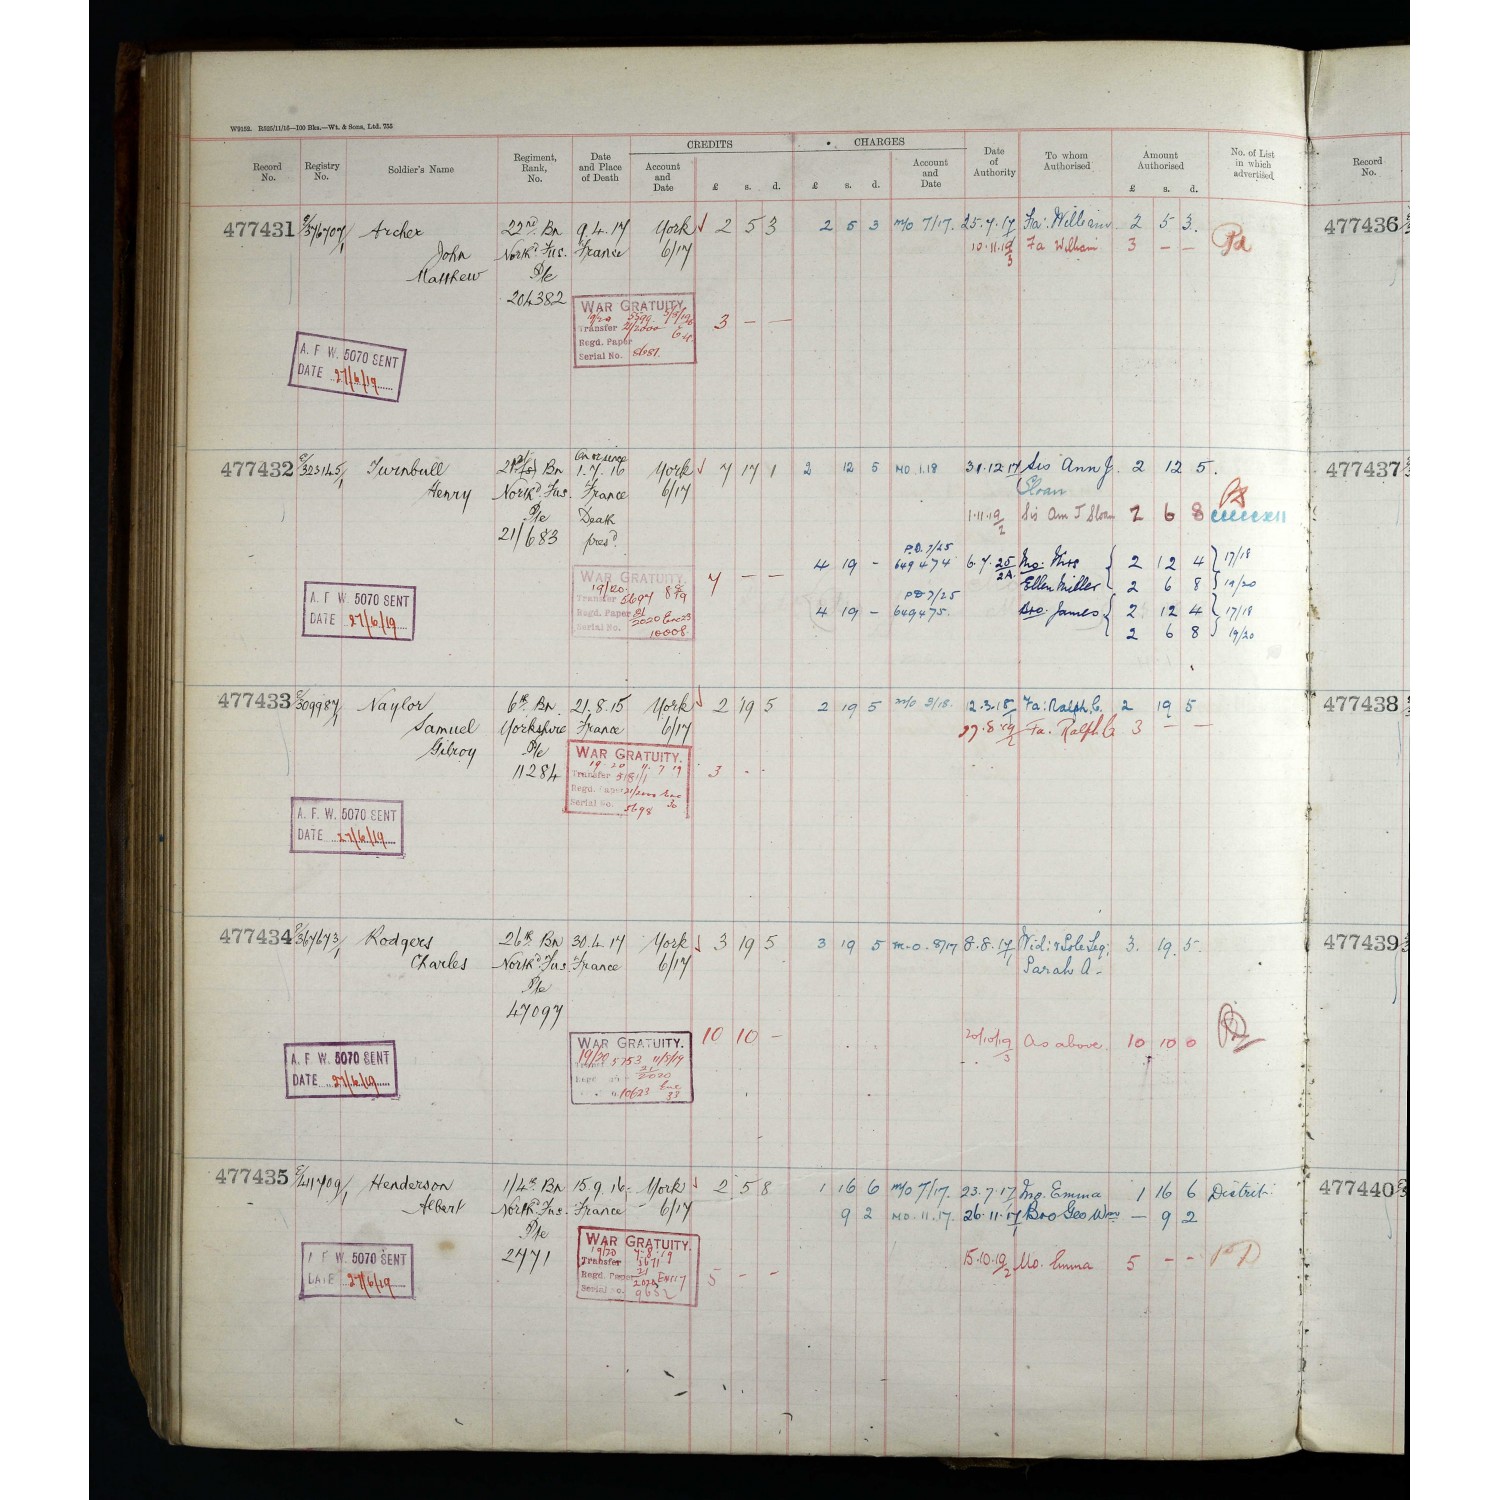 W9192. R525/11/16—100 Bks.—Wt. & Sons, Ltd. 755
Record No.
Registry No.
Soldier's Name
Regiment, Rank, No.
Date and Place of Death
CREDITS
Account and Date
£ s. d.
CHARGES
£ s. d.
Account and Date
Date of Authority
To whom Authorised
Amount Authorised
£ s. d.
No. of List in which advertised
Record No.
477431 E/376707/1 Archer 22nd Bn 9.4.17 York 2 5 3 2 5 3 m/o 7/17. 25.7.17 Fa: William 2 5 3. 477436
John North'd Fus. France 6/17 10.11.19/3 Fa William 3 — — Pd
Matthew Pte
204382
WAR GRATUITY.
19/20 5/8/19
Transfer 21/2000 3 — —
Regd. Paper
Serial No. 5681
A. F. W. 5070 SENT
DATE 27/6/19
477432 E/323145/1 Turnbull 21st Bn On or since 1.7.16 York 7 17 1 2 12 5 MO 1.18 31.12.17 Sis Ann J. 2 12 5. 477437
Henry North'd Fus. France 6/17 Sloan
Pte Death 1.11.19/2 Sis Ann J Sloan 2 6 8
21/683 pres'd.
4 19 - P.D. 7/25 649474 6.7.25/2A. Mo: Mrs 2 12 4 17/18
Ellen Miller 2 6 8 19/20
4 19 - PD 7/25 649475. Bro: James 2 12 4 17/18
2 6 8 19/20
WAR GRATUITY.
19/20
Transfer 5697 7 — —
Regd. Paper 21/2020
Serial No. 10008
A. F. W. 5070 SENT
DATE 27/6/19
477433 E/309987/1 Naylor 6th Bn. 21.8.15 York 2 19 5 2 19 5 m/o 3/18. 12.3.18/1 Fa: Ralph G. 2 19 5 477438
Samuel Yorkshire France 6/17 27.8.19/2 Fa. Ralph G 3 — —
Gilroy Pte
11284
WAR GRATUITY.
19-20 11.7.19
Transfer 3 - -
Regd. Paper 21/2000
Serial No. 5698
A. F. W. 5070 SENT
DATE 27/6/19
477434 E/367673/1 Rodgers 26th Bn 30.4.17 York 3 19 5 3 19 5 M.O. 8/17 8.8.17/1 Wid: & Sole Leg: 3. 19. 5. 477439
Charles North'd Fus. France 6/17 Sarah A.
Pte
47097
10 10 — 20/10/19/3 As above. 10 10 0
WAR GRATUITY.
19/20 5753 11/8/19
21/2020
10623
A. F. W. 5070 SENT
DATE 27/6/19
477435 E/411709/1 Henderson 1/4th Bn 15.9.16 York 2 5 8 1 16 6 m/o 7/17. 23.7.17 Mo. Emma 1 16 6 Distrib: 477440
Albert North'd Fus. France 6/17 9 2 MO. 11.17. 26.11.17/1 Bro Geo Wm — 9 2
Pte
2471
WAR GRATUITY.
19/20 7.8.19
Transfer 5671
Regd. Paper 21/2020
Serial No. 9652
5 — — 15.10.19/2 Mo. Emma 5 — —
A. F. W. 5070 SENT
DATE 27/6/19